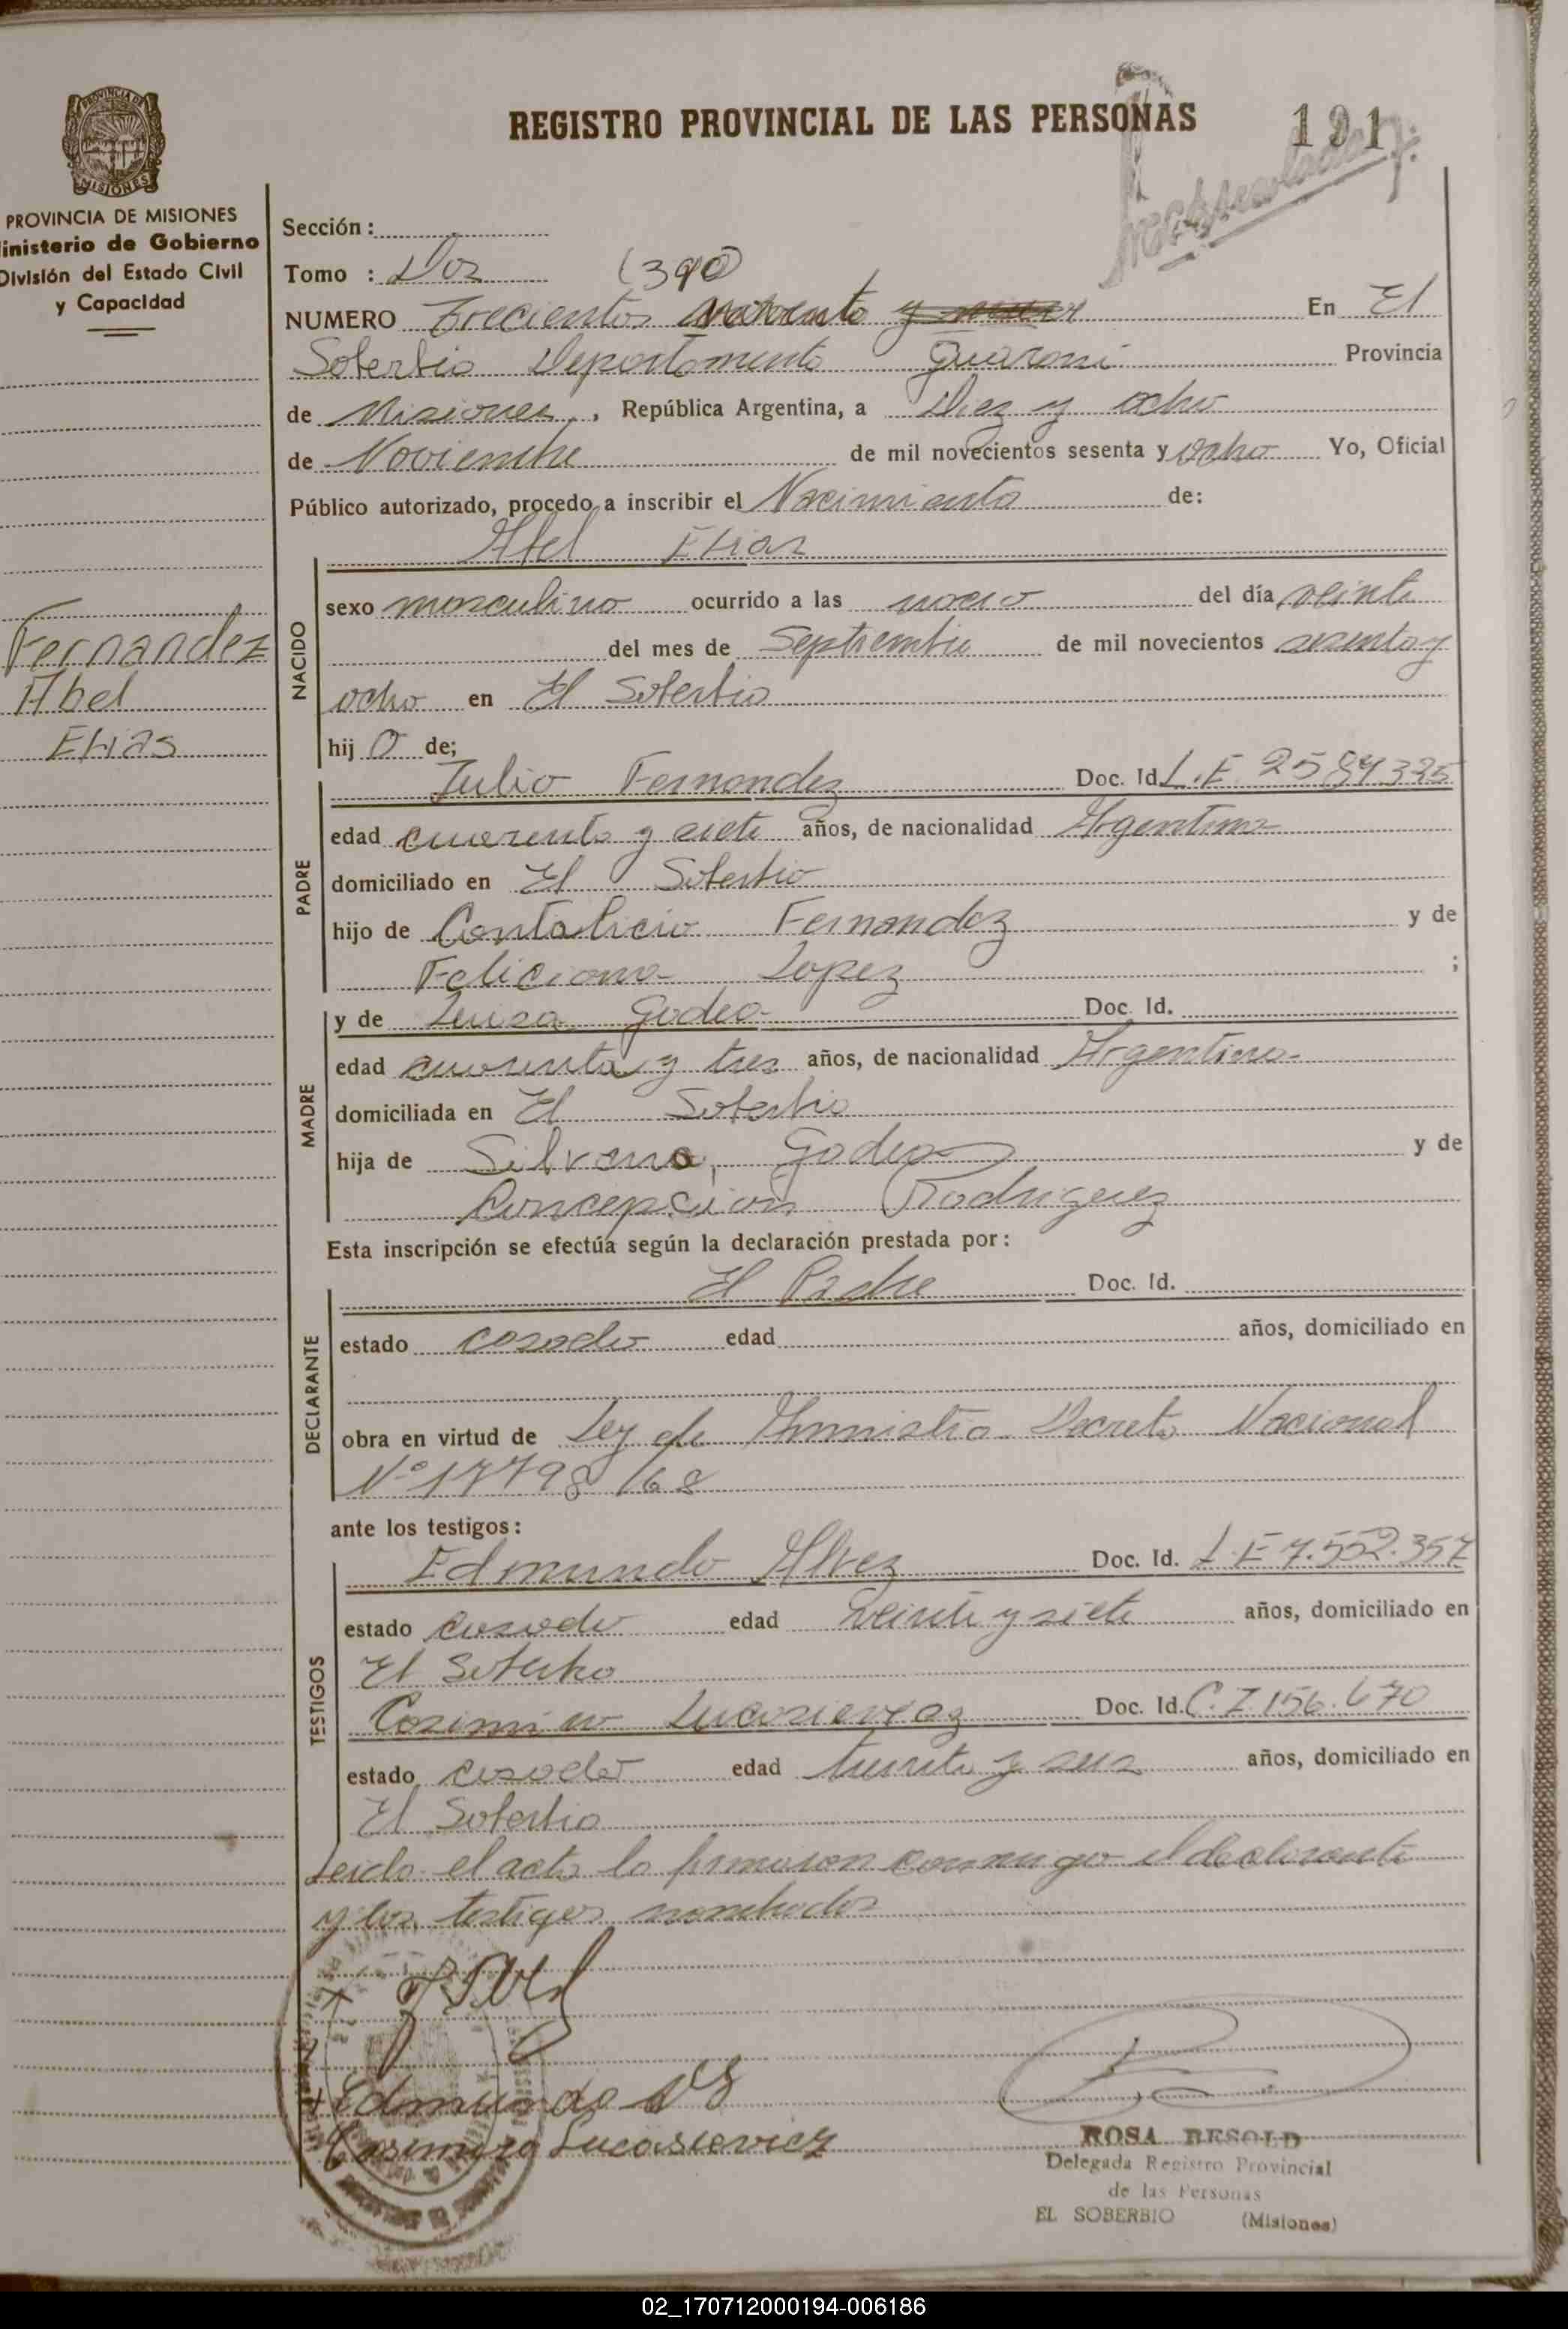 REGISTRO PROVINCIAL DE LAS PERSONAS
191
PROVINCIA DE MISIONES
PROVINCIA DE MISIONES
inisterio de Gobierno
División del Estado Civil
y Capacidad
Sección:
Tomo : Dos (390)
NUMERO Trecientos noventa y En El
Soberbio Departamento Guarani Provincia
de Misiones, República Argentina, a Diez y ocho
de Noviembre de mil novecientos sesenta y ocho Yo, Oficial
Público autorizado, procedo a inscribir el Nacimiento de:
Abel Elias
Fernandez
Abel
Elias
NACIDO
sexo masculino ocurrido a las del día veinte
del mes de Septiembre de mil novecientos sesenta y
ocho en El Soberbio
hij o de;
PADRE
Julio Fernandez Doc. Id. L.E 2584325
edad cuarenta y siete años, de nacionalidad Argentina
domiciliado en El Soberbio
hijo de Contalicio Fernandez y de
Feliciana Lopez ;
MADRE
y de Luisa Godeo Doc. Id.
edad cuarenta y tres años, de nacionalidad Argentina
domiciliada en El Soberbio
hija de Silvano Godeo y de
Concepcion Rodriguez
Esta inscripción se efectúa según la declaración prestada por:
DECLARANTE
El Padre Doc. Id.
estado casado edad años, domiciliado en
obra en virtud de Ley de Amnistia Decreto Nacional
Nº 17798/68
ante los testigos:
TESTIGOS
Edmundo Alvez Doc. Id. L.E 7.552.357
estado casado edad veinte y siete años, domiciliado en
El Soberbio
Casimiro Lucasieviez Doc. Id. C.I 156.670
estado casado edad treinta y seis años, domiciliado en
El Soberbio
Leido el acta la firmaron conmigo el declarante
y los testigos nombrados
Edmundo
Casimiro Lucasievicz
ROSA BESOLD
Delegada Registro Provincial
de las Personas
EL SOBERBIO (Misiones)
02_170712000194-006186